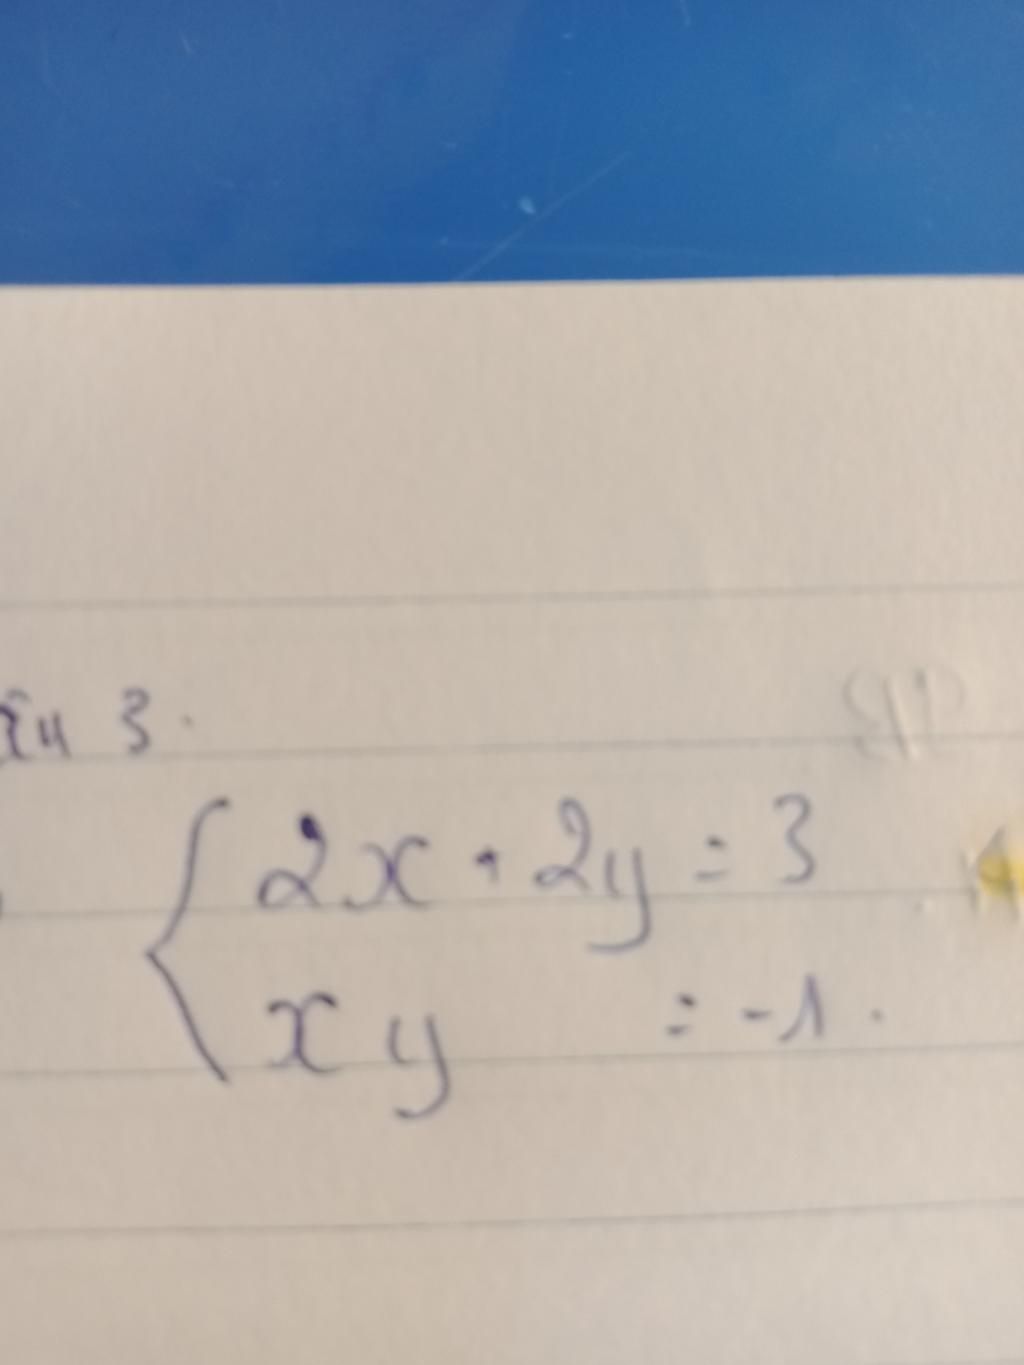 3.
2x + 2y = 3
xy = -1.